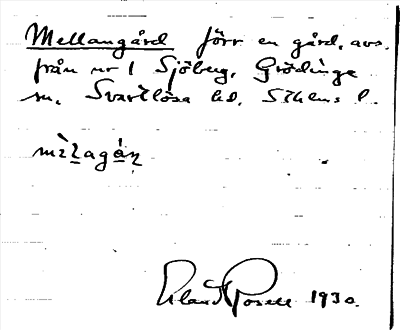 Mellangård förr en gård, avs.
från nr 1 Sjöberg, Grödinge
sn, Svartlösa hd, Sthlms l.
mèlagán
Erland Rosell 1930.